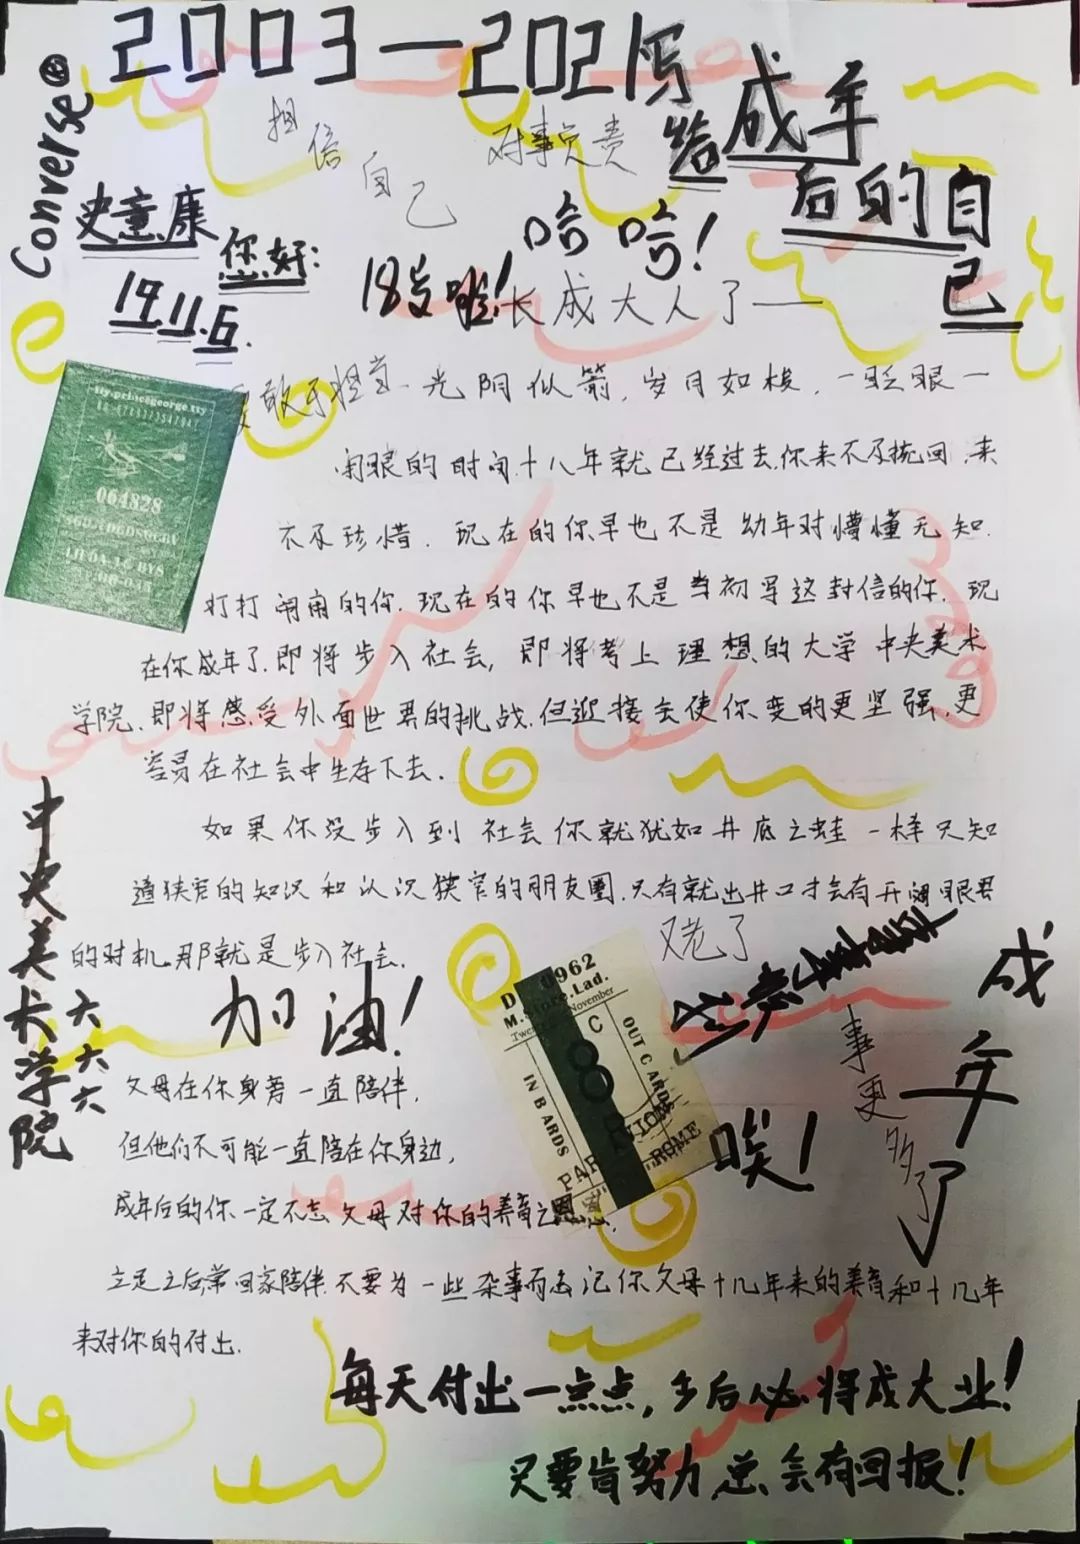 2003—2021写
给成年
后的自
己
Converse
相信自己
对事负责
哈哈!
史童康
您好:
19.11.6.
18岁啦!
长成大人了——
敢于担当一光阴似箭,岁月如梭,一眨眼一
闭眼的时间,十八年就已经过去,你来不及挽回,来
不及珍惜.现在的你早也不是幼年时懵懂无知.
打打闹闹的你.现在的你早也不是当初写这封信的你.现
在你成年了.即将步入社会,即将考上理想的大学中央美术
学院.即将感受外面世界的挑战.但迎接会使你变的更坚强,更
容易在社会中生存下去.
如果你没步入到社会你就犹如井底之蛙一样只知
道狭窄的知识和认识狭窄的朋友圈.只有就出井口才会有开阔眼界
的时机.那就是步入社会.
又老了
加油!
中央美术学院
大大大
父母在你身旁一直陪伴.
但他们不可能一直陪在你身边,
成年后的你一定不忘父母对你的养育之恩.
立足之后常回家陪伴.不要为一些杂事而忘记你父母十几年来的养育和十几年
来对你的付出.
成年了
事更多了
唉!
每天付出一点点,步后必将成大业!
只要肯努力,总会有回报!
064828
0962
M. Lad.
November
C
8
OUT CARDS
IN BARDS
PAR
ROME